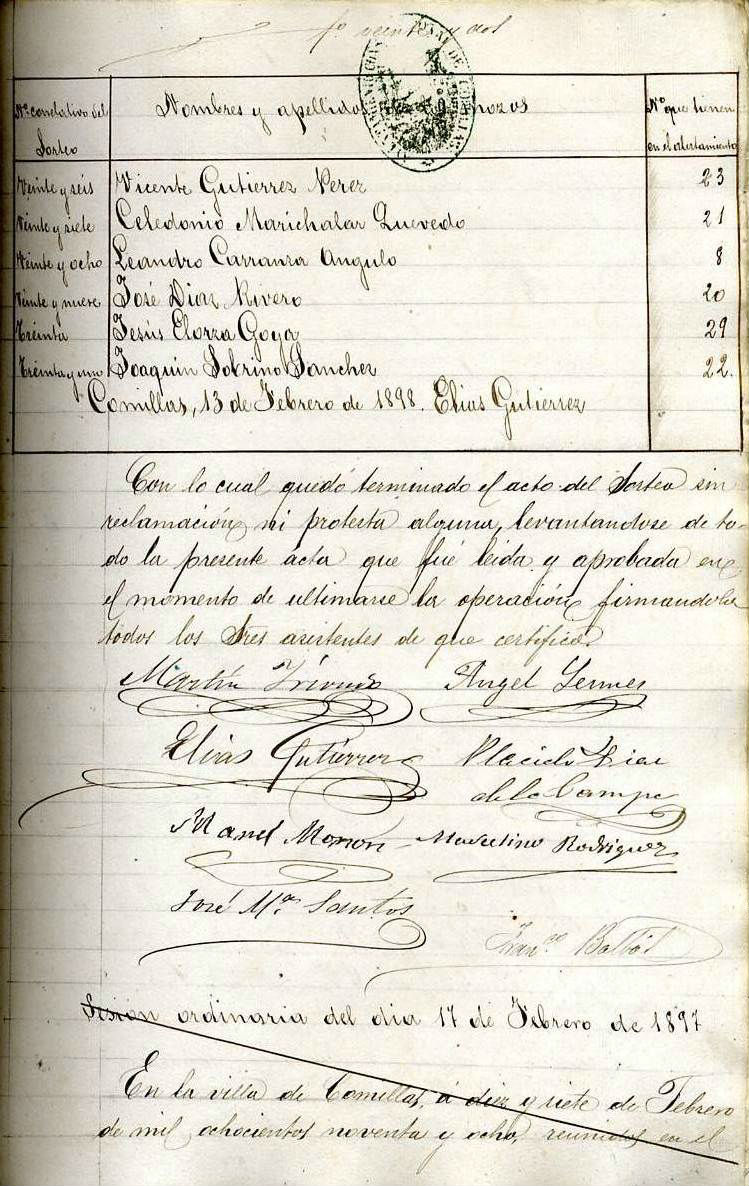 fº veinte y dos
Nº correlativo del Sorteo | Nombres y apellidos mozos | Nº que tienen en el alistamiento
Veinte y séis | Vicente Gutierrez Perez | 23
Veinte y siete | Celedonio Marichalar Quevedo | 21
Veinte y ocho | Leandro Carranza Angulo | 8
Veinte y nueve | José Diaz Rivero | 20
Treinta | Jesús Elorza Goya | 29
Treinta y uno | Joaquin Sobrino Sanchez | 22.
Comillas, 13 de Febrero de 1898. Elias Gutierrez
Con lo cual quedó terminado el acto del Sorteo sin
reclamación ni protesta alguna, levantandose de to-
do la presente acta que fué leida y aprobada en
el momento de ultimarse la operación, firmandola
todos los Sres asistentes de que certifico.
Martín Angel
Elías Gutiérrez Placido Diaz
de la Campa
Manuel Marcelino Rodriguez
José Mª Santos
Franco
Sesión ordinaria del dia 17 de Febrero de 1897
En la villa de Comillas, á diez y siete de Febrero
de mil ochocientos noventa y ocho, reunidos en el